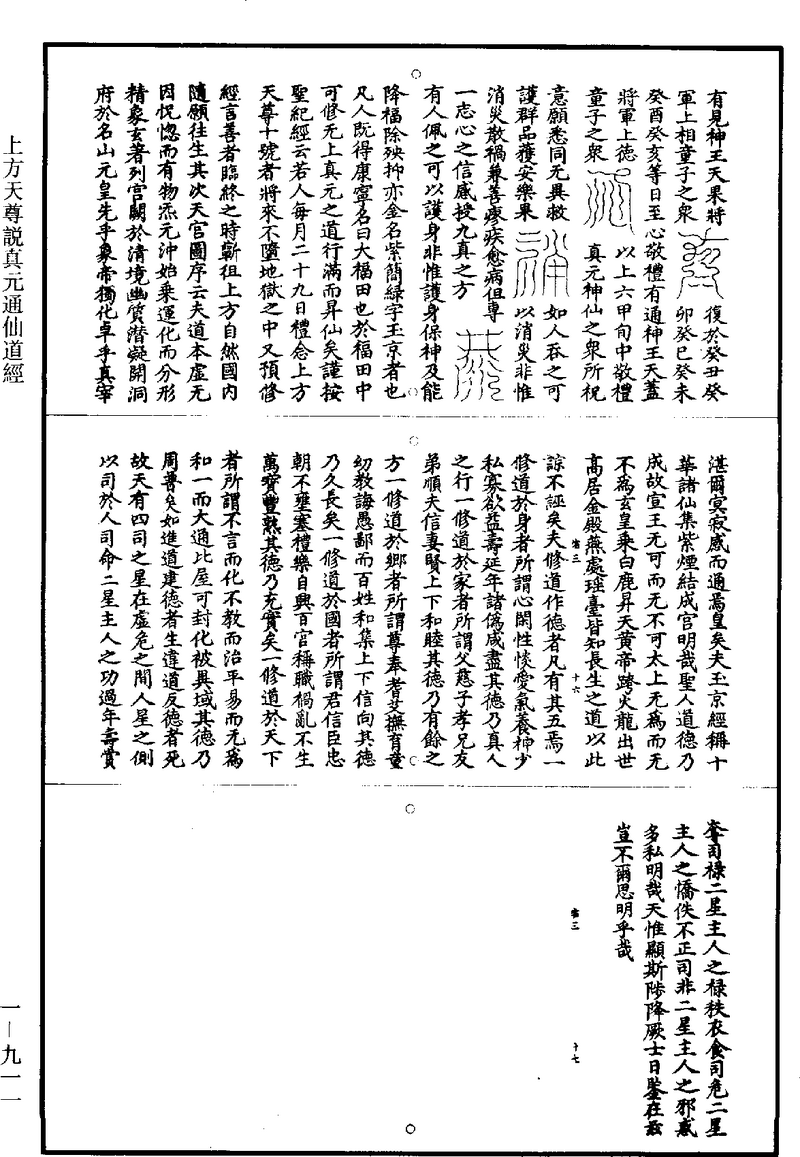 有見神王天果將
軍上相童子之衆
復於癸丑癸
卯癸巳癸未
癸酉癸亥等日至心敬禮有通神王天蓋
將軍上德
童子之衆
以上六甲旬中敬禮
真元神仙之衆所祝
意願悉同无異救
護群品獲安樂果
如人吞之可
以消災非惟
消災散禍兼善療疾愈病但專
一志心之信感授九真之方
有人佩之可以護身非惟護身保神及能
降福除殃抑亦金名紫簡綠字玉京者也
凡人既得康寧名曰大福田也於福田中
可修无上真元之道行滿而昇仙矣謹按
聖紀經云若人每月二十九日禮念上方
天尊十號者將來不墮地獄之中又預修
經言善者臨終之時蘄徂上方自然國内
隨願往生其次天官圖序云夫道本虛无
因怳惚而有物炁元沖始乘運化而分形
精象玄著列宫闕於清境幽質潛凝開洞
府於名山元皇先乎象帝獨化卓乎真宰
湛爾冥寂感而通焉皇矣夫玉京經稱十
華諸仙集紫煙結成宫明哉聖人道德乃
成故宣王无可而无不可太上无為而无
不為玄皇乘白鹿昇天黄帝跨火龍出世
高居金殿燕處瑶臺皆知長生之道以此
諒不誣矣夫修道作德者凡有其五焉一
修道於身者所謂心閑性惔愛氣養神少
私寡欲益壽延年諸僞咸盡其德乃真人
之行一修道於家者所謂父慈子孝兄友
弟順夫信妻賢上下和睦其德乃有餘之
方一修道於鄉者所謂尊奉耆艾撫育童
幼教誨愚鄙而百姓和集上下信向其德
乃久長矣一修道於國者所謂君信臣忠
朝不壅塞禮樂自興百官稱職禍亂不生
萬寶豐熟其德乃充實矣一修道於天下
者所謂不言而化不教而治平易而无為
和一而大通比屋可封化被異域其德乃
周普矣如進道建德者生違道反德者死
故天有四司之星在虛危之間人星之側
以司於人司命二星主人之功過年壽賞
宿三
十六
奪司禄二星主人之禄秩衣食司危二星
主人之憍佚不正司非二星主人之邪惑
多私明哉天惟顯斯陟降厥士日鑒在兹
豈不爾思明乎哉
宿三
十七
上方天尊説真元通仙道經
一—九一一